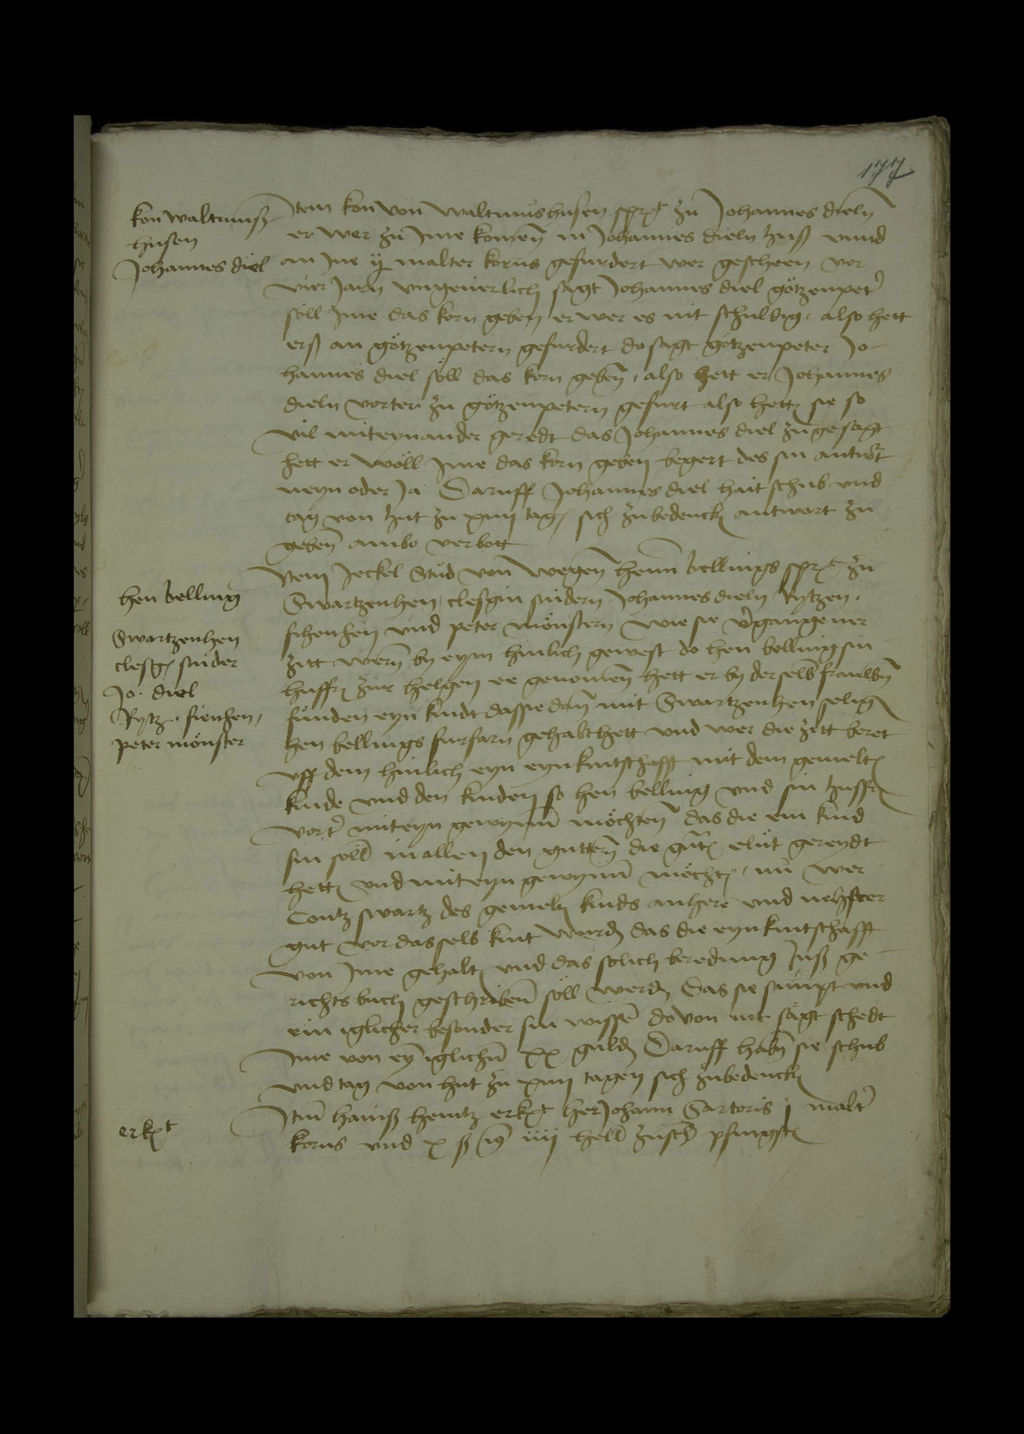 177
kon waltmuß
husen
Johannes diel
Item kon von waltmußhusen sprᵉ zu Johannes dieln
er wer zu Ime komen in Johannes dieln huß vnnd
an Ine ij malter korns gefurdert wer gescheen vor
vier Jarn vngeuerlich sagt Johannes diel götzenpet
söll Ime das korn geben er wer es nit schuldig, also hett
erß an götzenpetern gefurdert do sagt götzenpeter Jo
hannes diel söll das korn geben, also hett er Johannes
dieln vorter zu götzenpetern gefurt also hett sie so
vil miteynander geredt das Johannes diel zugesagt
hett er wöll Ime das korn geben begert des sin antwͦrt
neyn oder Ja Daruff Johannes diel hait schub vnd
tag von hut zu xiiij tag sich zubedenck antwort zu
geben ambo verbott
hen belling
Swartzenhen
clesgin suder
Jo. diel
Rytz. fienhen,
peter mönster
Item Jeckel Stud von wegen henn bellings sprᵉ zu
Swartzenhen, clesgin sudern, Johannes dieln Rytzen,
fihenhen vnd peter mönstern wie sie vergangener
zitt wern by eym hinlich gewest do hen belling sin
hussfr zur helgen ee genomen hett er by derselb frauwen
funden eyn kindt das sie dan mit Swartzenhen selig
hen bellings furfarn gehabt hett vnd wer die zitt beret
vff dem hinlich eyn eynkintschafft mit dem gemelt
kinde vnd den kinden so hen belling vnd sin hussfr
vort miteyn gewynn möchten das die ein kind
sin solt in allen den gutten die gut elut gereydt
hett vnd miteyn gewynn möcht, nu wer
Contz swartz des gemelt kinds anhere vnd nehster
gut vor dasselb kint werd das die eynkintschafft
von Ime gehalt vnd das solich beredung Inß ge
richts buch geschriben söll werd Das sie sampt vnd
ein iglicher besonder sin wissen do von nit sagt schedt
Ime von eym iglichen xx guld Daruff haben sie schub
vnd tag von hut zu xiiij tagen sich zubedenck
erkᵗ
Item hanß hentz erkᵗ her Johann Sartoris j malt
korns vnd x ß iiij hell zusch pfingst